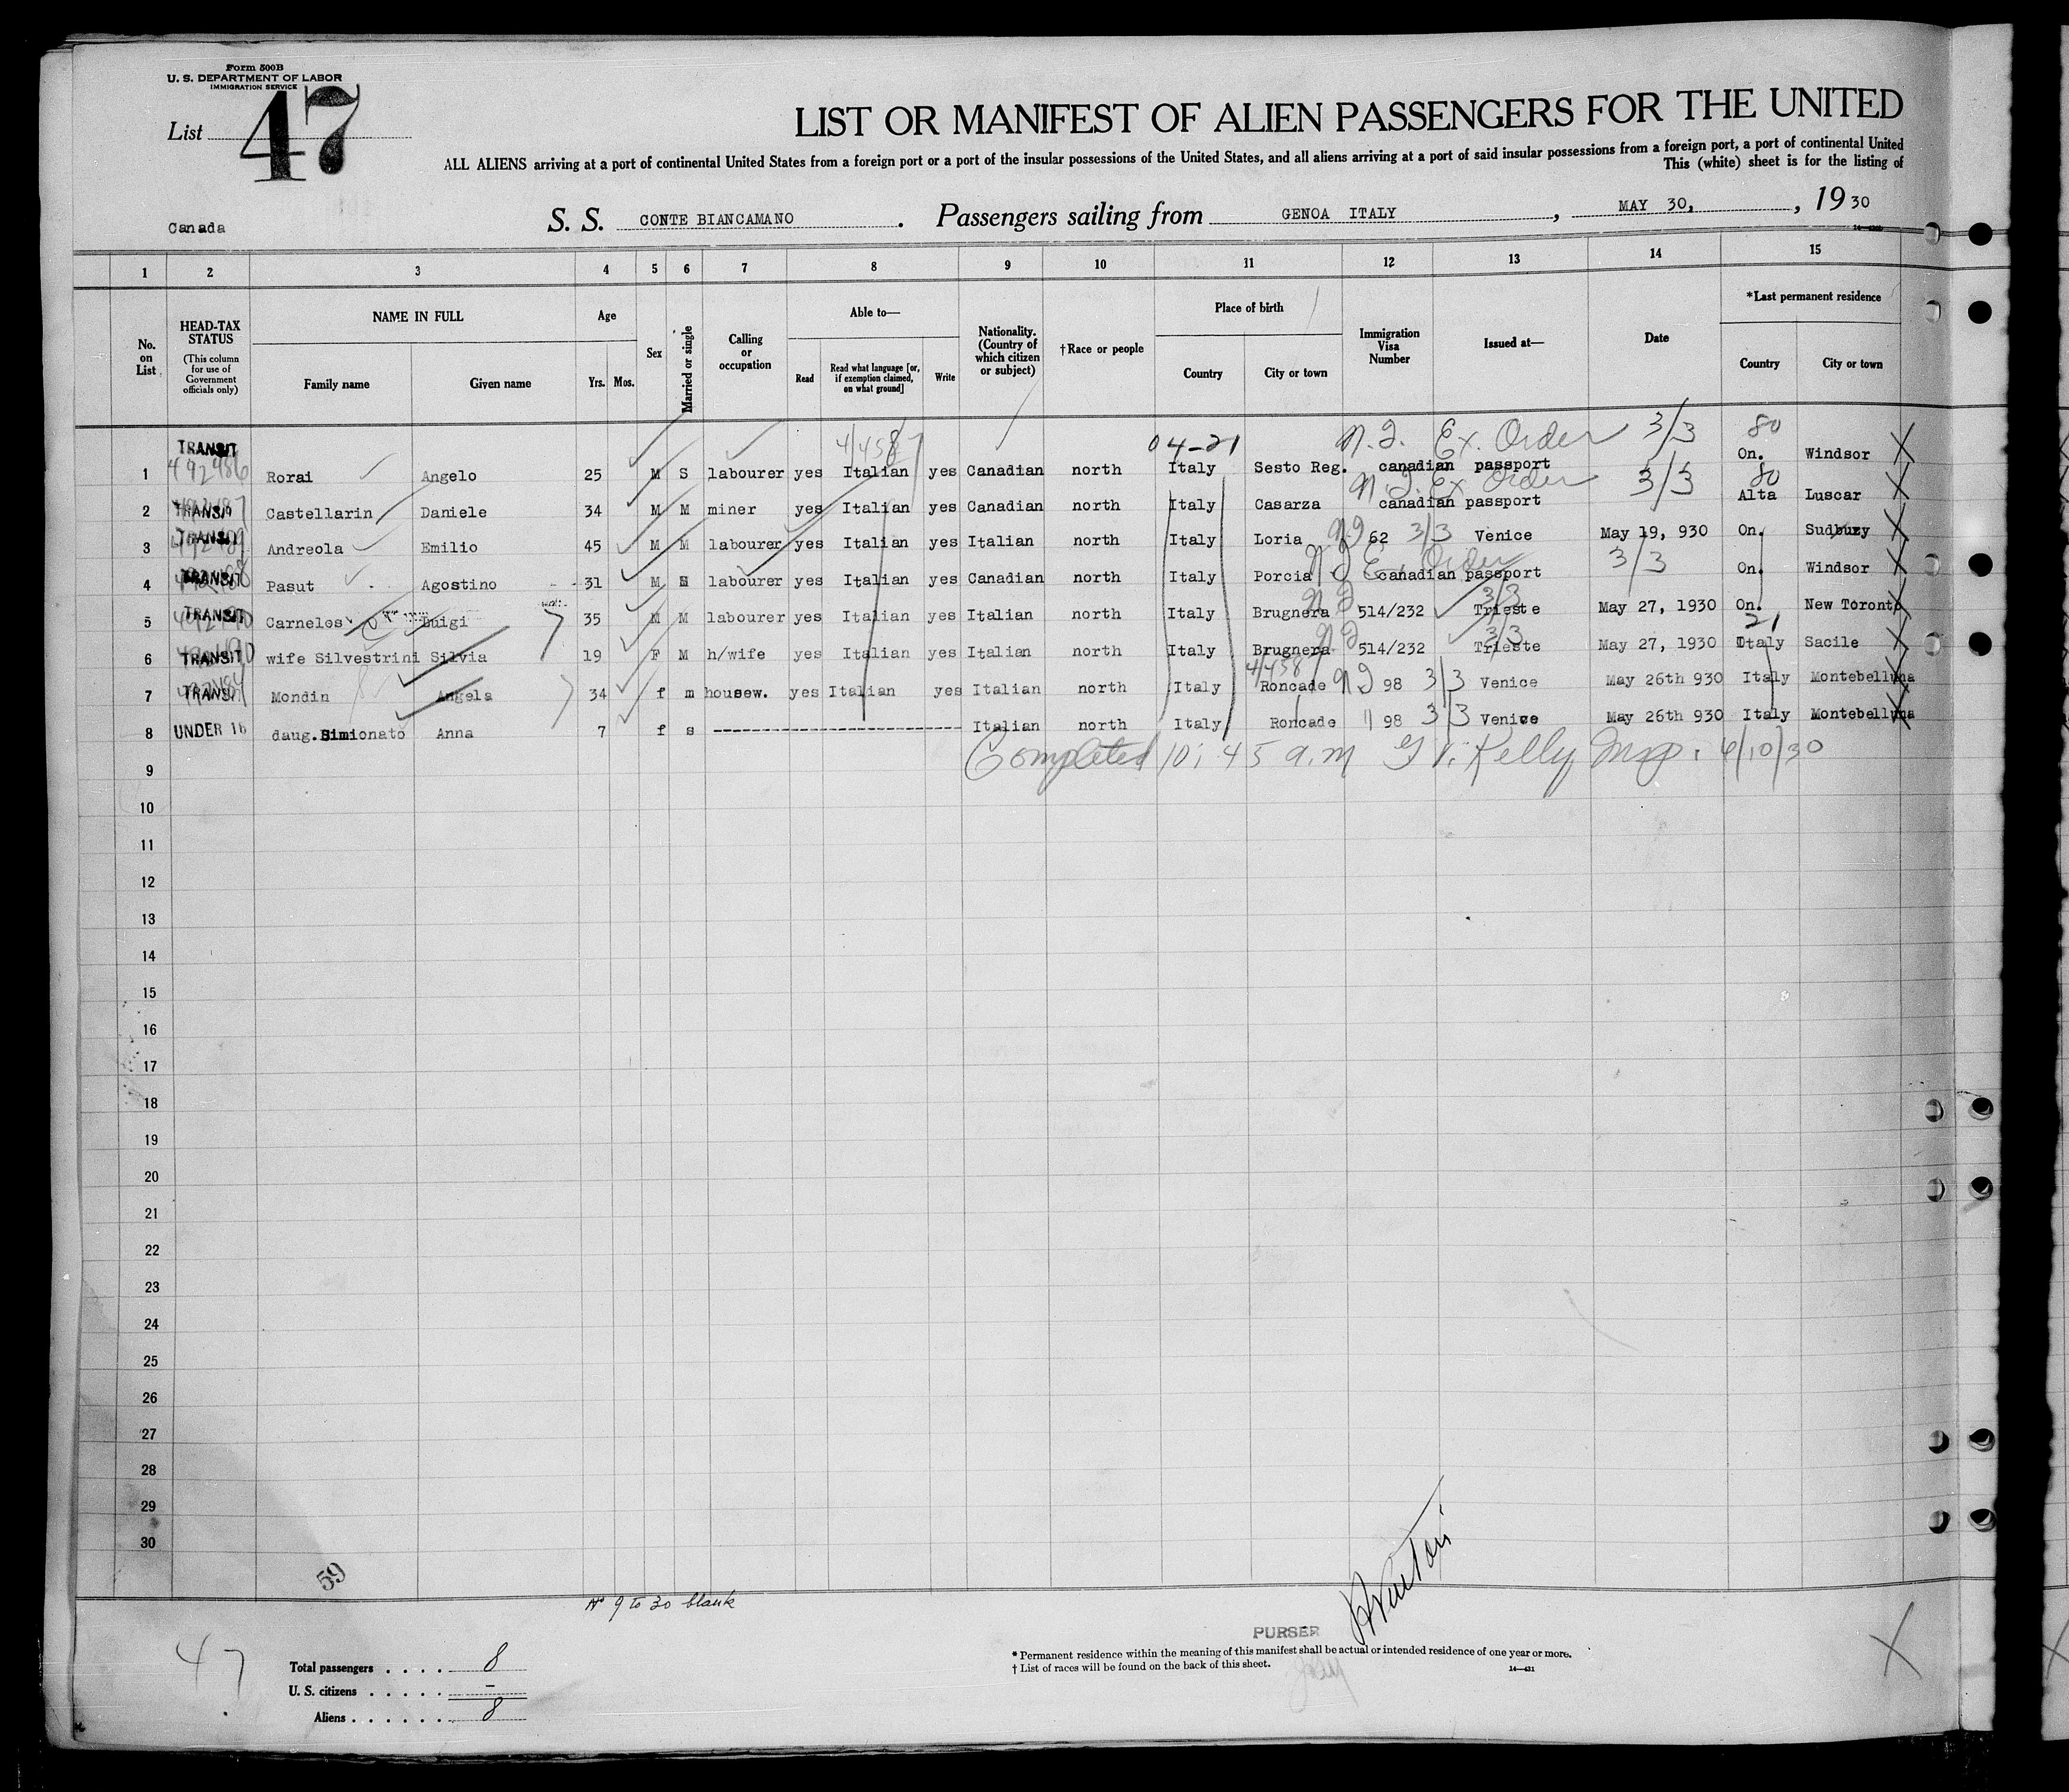 Form 500B
U. S. DEPARTMENT OF LABOR
IMMIGRATION SERVICE
List 47
LIST OR MANIFEST OF ALIEN PASSENGERS FOR THE UNITED
ALL ALIENS arriving at a port of continental United States from a foreign port or a port of the insular possessions of the United States, and all aliens arriving at a port of said insular possessions from a foreign port, a port of continental United
This (white) sheet is for the listing of
Canada
S. S. CONTE BIANCAMANO. Passengers sailing from GENOA ITALY, MAY 30, , 19 30
1 2 3 4 5 6 7 8 9 10 11 12 13 14 15
No. on List
HEAD-TAX STATUS
(This column for use of Government officials only)
NAME IN FULL
Family name Given name
Age
Yrs. Mos.
Sex
Married or single
Calling or occupation
Able to—
Read
Read what language [or, if exemption claimed, on what ground]
Write
Nationality. (Country of which citizen or subject)
†Race or people
Place of birth
Country City or town
Immigration Visa Number
Issued at—
Date
*Last permanent residence
Country City or town
04-21 Ex. Order 3/3 80
1 TRANSIT 492486 Rorai Angelo 25 M S labourer yes Italian yes Canadian north Italy Sesto Reg. canadian passport On. Windsor X
Ex. Order 3/3 80
2 TRANSIT Castellarin Daniele 34 M M miner yes Italian yes Canadian north Italy Casarza canadian passport Alta Luscar X
3 TRANSIT Andreola Emilio 45 M M labourer yes Italian yes Italian north Italy Loria 62 3/3 Venice May 19, 930 On. Sudbury X
Ex Order 3/3
4 TRANSIT Pasut Agostino 31 M labourer yes Italian yes Canadian north Italy Porcia canadian passport On. Windsor X
3/3
5 TRANSIT Carneles Luigi 35 M M labourer yes Italian yes Italian north Italy Brugnera 514/232 Trieste May 27, 1930 On. New Toronto X
3/3 21
6 TRANSIT wife Silvestrini Silvia 19 F M h/wife yes Italian yes Italian north Italy Brugnera 514/232 Trieste May 27, 1930 Italy Sacile X
7 TRANSIT Mondin Angela 34 f m housew. yes Italian yes Italian north Italy Roncade 98 3/3 Venice May 26th 930 Italy Montebelluna
8 UNDER 16 daug. Simionato Anna 7 f s Italian north Italy Roncade 98 3/3 Venice May 26th 930 Italy Montebelluna
9 Completed 10:45 a.m Kelly Insp. 6/10/30
10
11
12
13
14
15
16
17
18
19
20
21
22
23
24
25
26
27
28
29
30
59
No 9 to 30 blank
PURSER
* Permanent residence within the meaning of this manifest shall be actual or intended residence of one year or more.
† List of races will be found on the back of this sheet.
14—431
47
Total passengers . . . . 8
U. S. citizens . . . . . –
Aliens . . . . . . 8
X